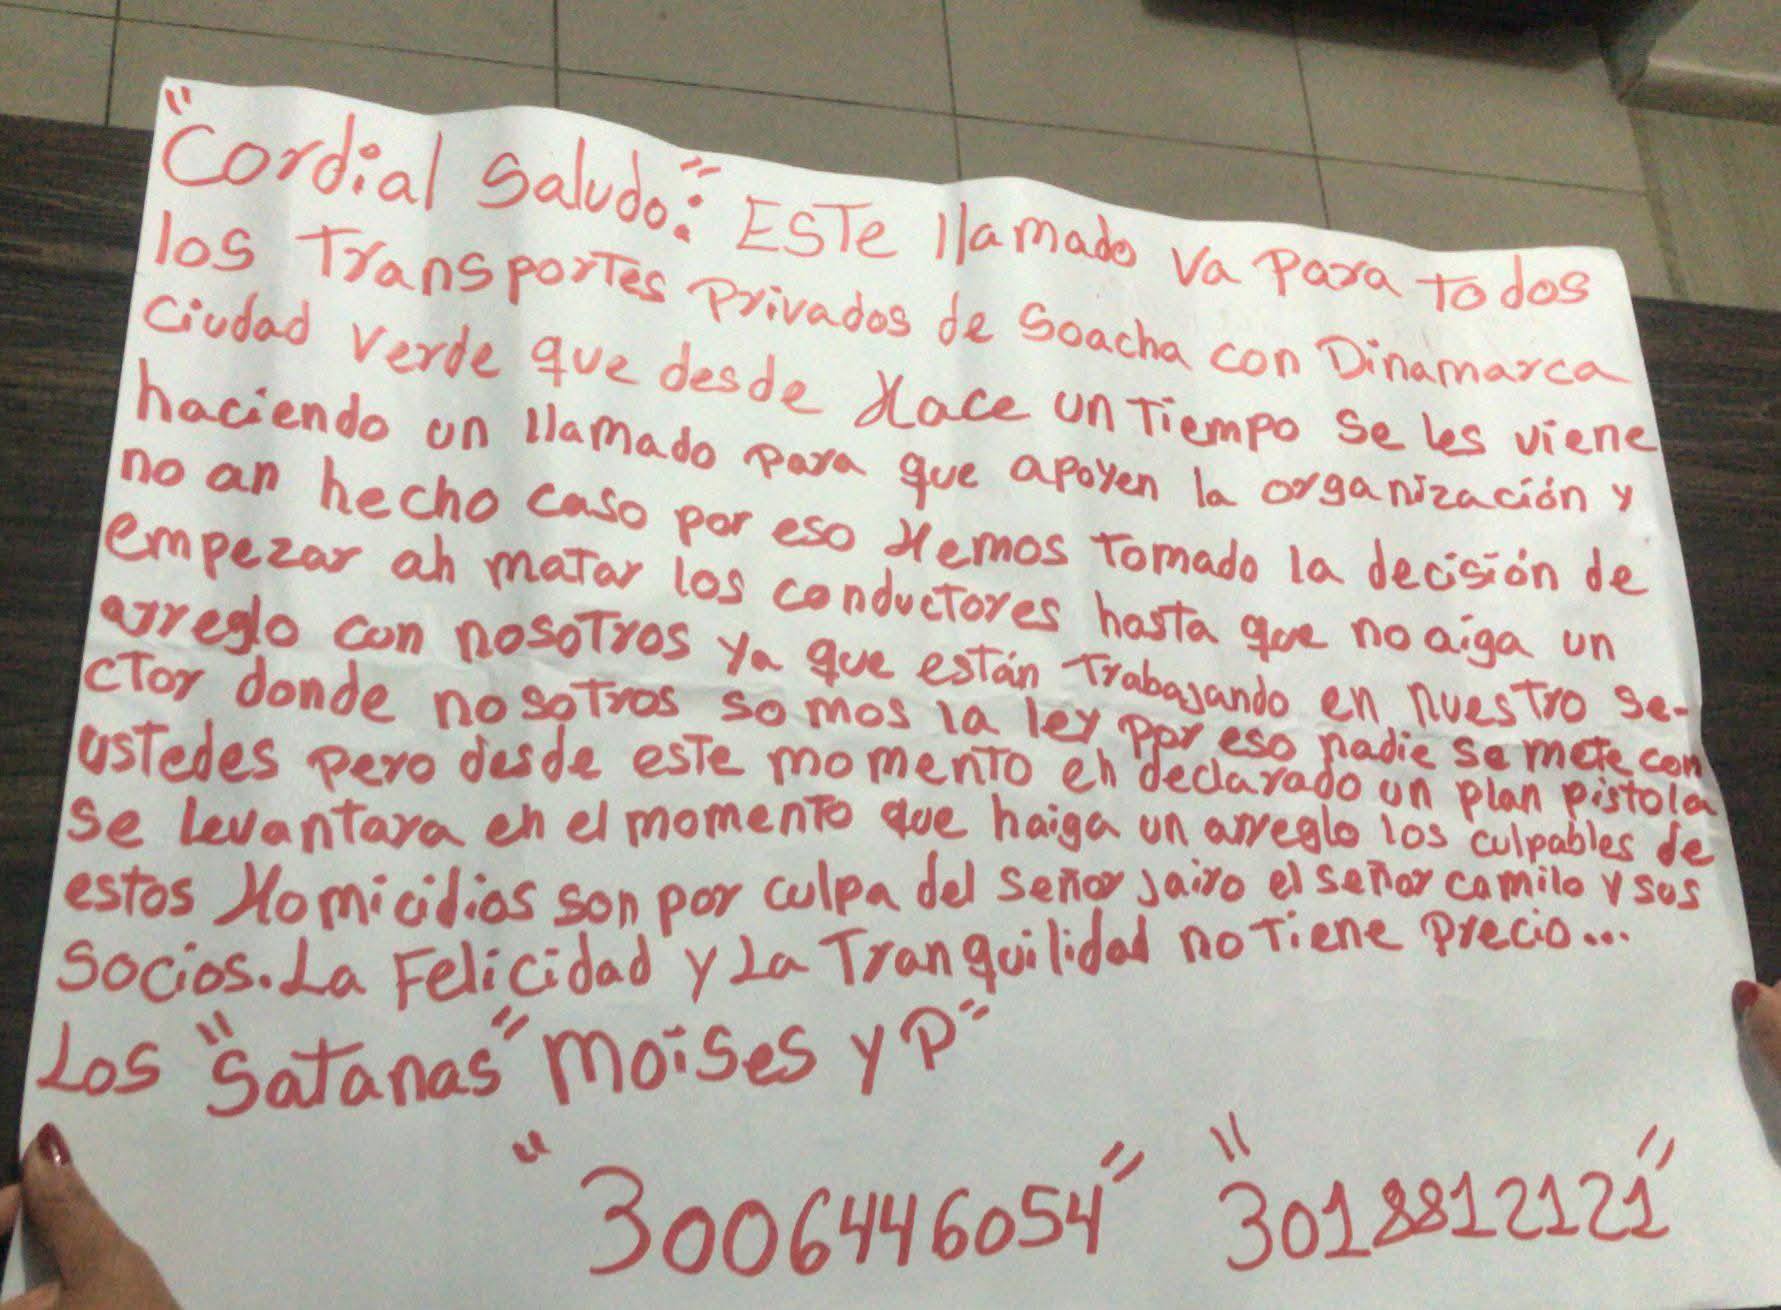 "Cordial Saludo": ESTe llamado va para todos
los Transportes privados de Soacha con Dinamarca
ciudad verde que desde Hace un Tiempo se les viene
haciendo un llamado para que apoyen la organización y
no an hecho caso por eso Hemos Tomado la decisión de
empezar ah matar los conductores hasta que no aiga un
arreglo con nosotros ya que están Trabajando en nuestro se-
ctor donde nosotros somos la ley por eso nadie se mete con
ustedes pero desde este momento eh declarado un plan pistola
se levantara eh el momento que haiga un arreglo los culpables de
estos Homicidios son por culpa del señor jairo el señor camilo y sus
socios. La Felicidad y La Tranquilidad no Tiene precio...
Los "Satanas" moises y P"
"3006446054" "3018812121"